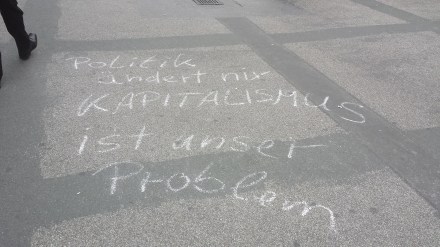 Politik
ändert nix
KAPITALISMUS
ist unser
Problem